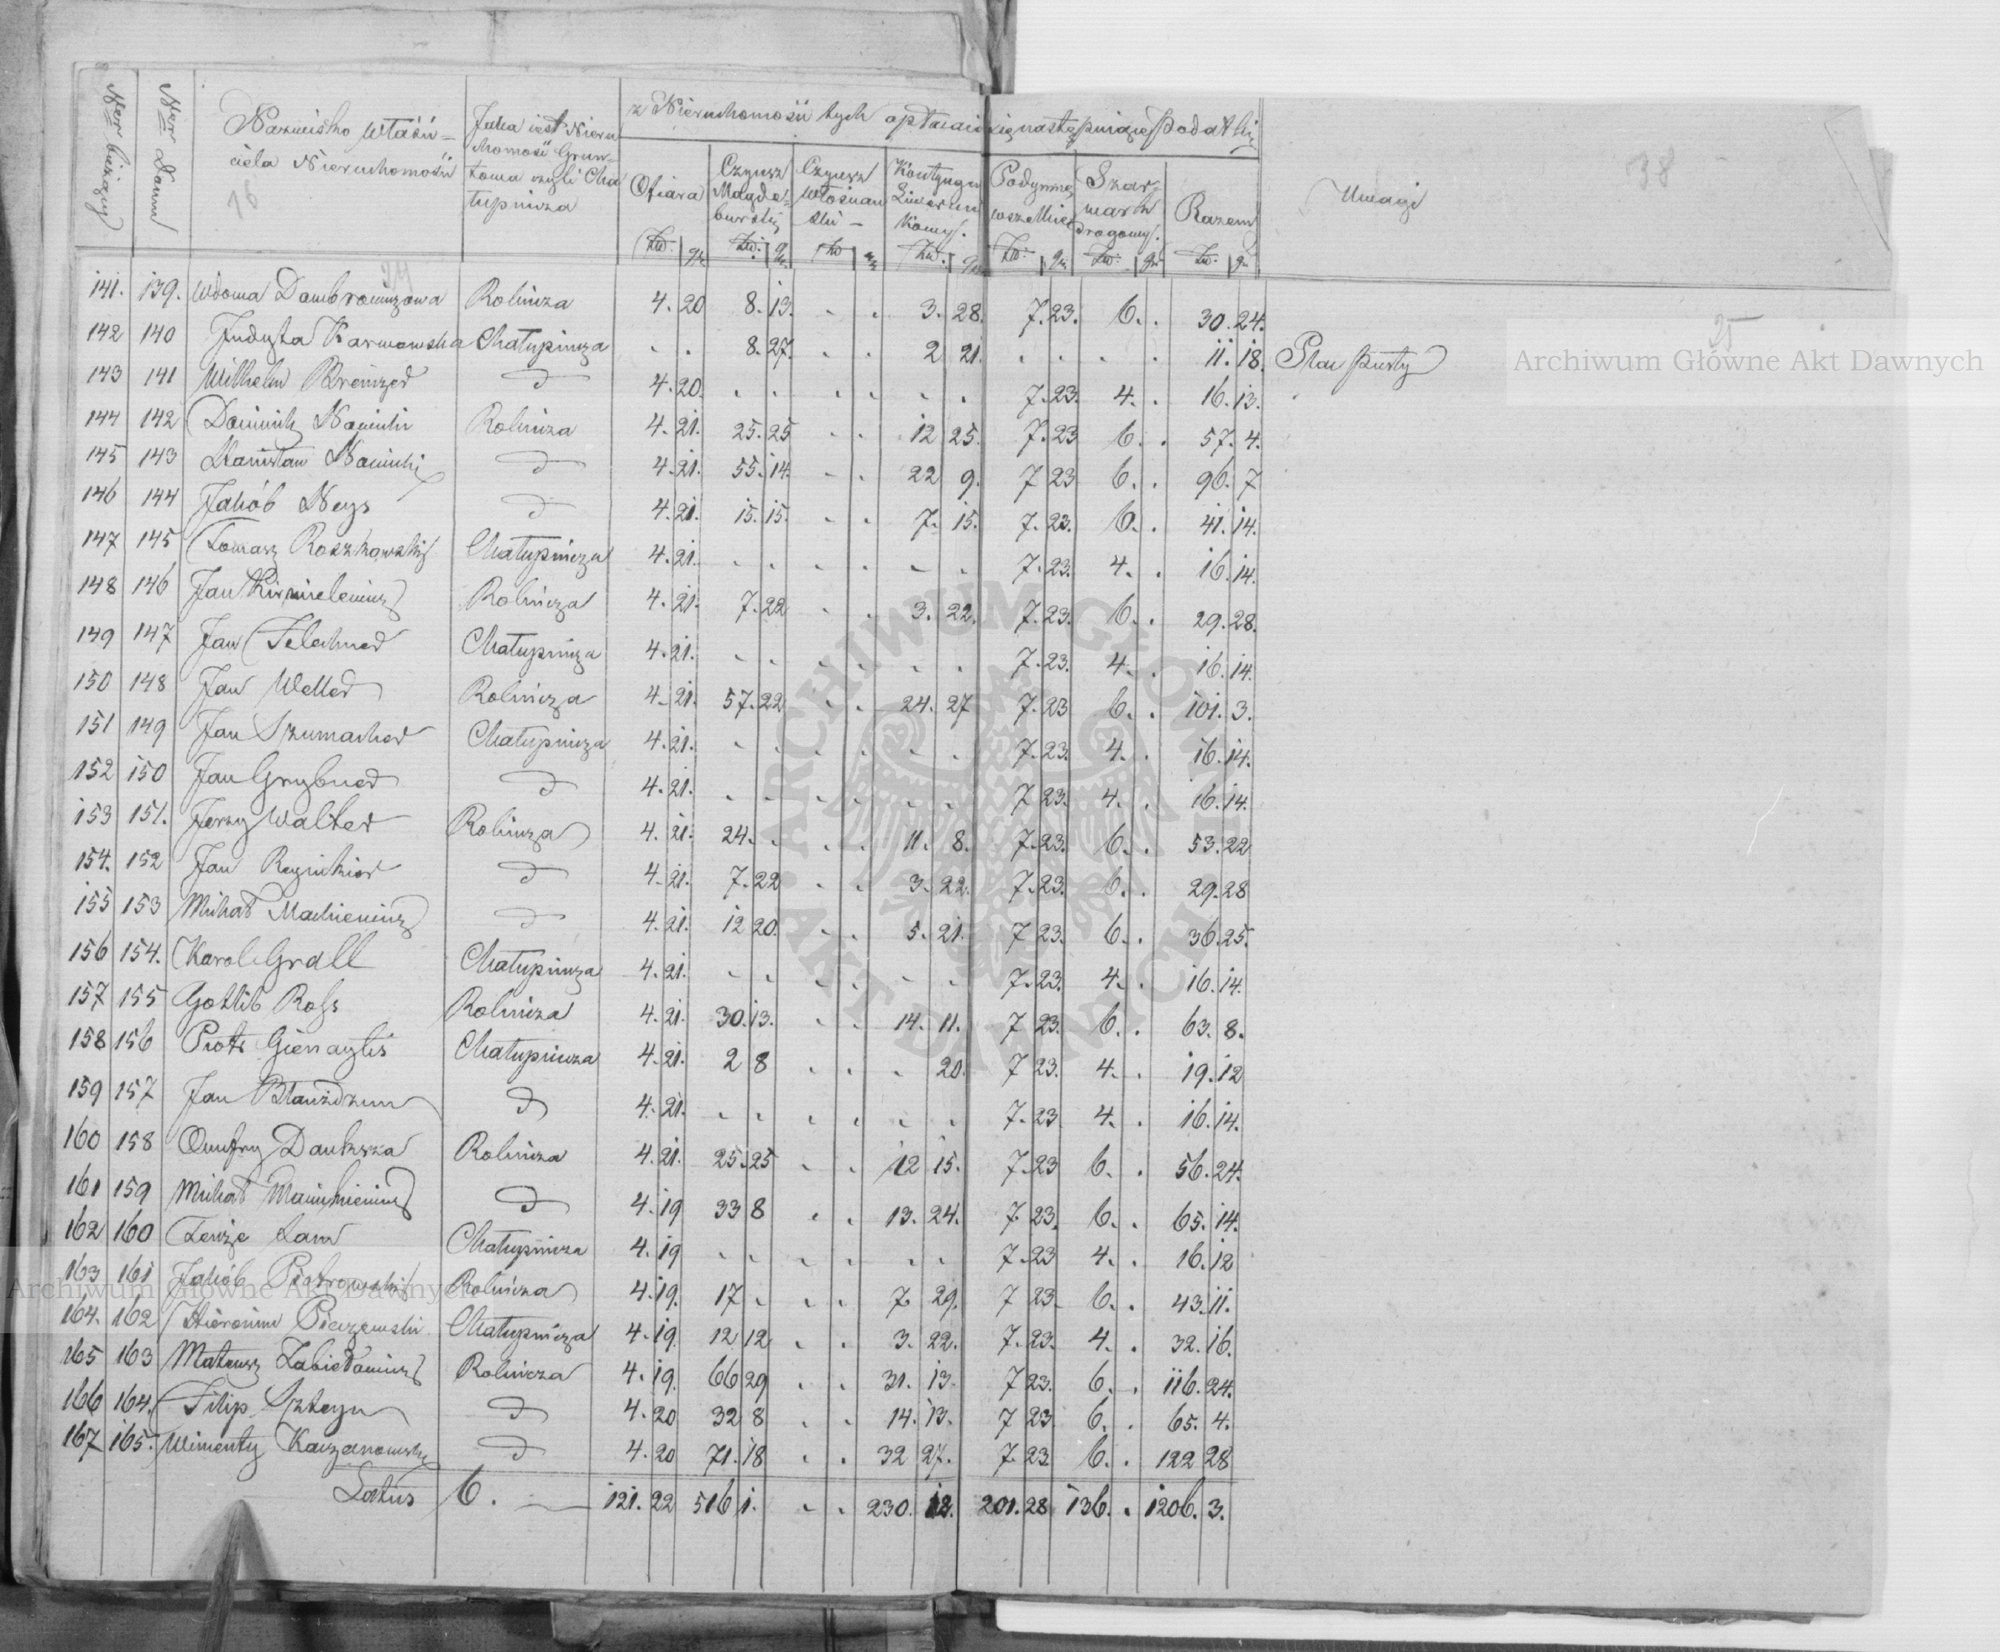 Ner bieżący | Ner Domu | Nazwisko Właściciela Nieruchomości | Jaka iest Nieruchomość Gruntowa czyli Chałupnicza | z Nieruchomości tych opłacaią się następuiące Podatki | Uwagi
Ofiara | Czynsz Magdeburski | Czynsz Włościański | Kontyngens Liwerunkowy | Podymne wszelkie | Szarwark drogowy | Razem
Zło: | gr | Zło: | gr | Zło | gr | Zło. | gr | Zło: | gr | Zło: | gr | Zło: | gr
38
25
141. 139. Wdowa Dombrowiczowa Rolnicza 4. 20 8. 13. . . 3. 28. 7. 23. 6. . 30. 24.
142 140 Judyta Karwowska Chałupnicza . . 8. 27. . . 2 21. . . . . 11. 18. Plac Pusty
143 141 Wilhelm d 4. 20. . . . . . . 7. 23. 4. . 16. 13.
144 142 Dominik Rolnicza 4. 21. 25. 25 . . 12 25. 7. 23 6. . 57. 4.
145 143 Stanisław d 4. 21. 55. 14. . . 22 9. 7 23 6. . 96. 7
146 144 Jakób Neys d 4. 21. 15. 15. . . 7. 15. 7. 23. 6. . 41. 14.
147 145 Tomasz Roszkowski Chałupnicza 4. 21. . . . . . . 7. 23. 4. . 16. 14.
148 146 Jan Rolnicza 4. 21. 7. 22 . . 3. 22. 7. 23. 6. . 29. 28.
149 147 Jan Chałupnicza 4. 21. . . . . . . 7. 23. 4. . 16. 14.
150 148 Jan Weller Rolnicza 4. 21. 57. 22 . . 24. 27 7. 23 6. . 101. 3.
151 149 Jan Szumacher Chałupnicza 4. 21. . . . . . . 7. 23. 4. . 16. 14.
152 150 Jan Grybner d 4. 21. . . . . . . 7 23. 4. . 16. 14.
153 151. Jerzy Walter Rolnicza 4. 21. 24. . . . 11. 8. 7. 23. 6. . 53. 22
154. 152 Jan d 4. 21. 7. 22 . . 3. 22. 7. 23. 6. . 29. 28
155 153 Michał Mackiewicz d 4. 21. 12 20. . . 5. 21. 7 23. 6. . 36. 25.
156 154. Karol Grall Chałupnicza 4. 21. . . . . . . 7. 23. 4. . 16. 14.
157 155 Gotlib Rolnicza 4. 21. 30. 13. . . 14. 11. 7 23. 6. . 63. 8.
158 156 Piotr Gienaytis Chałupnicza 4. 21. 2 8 . . . 20. 7 23. 4. . 19. 12
159 157 Jan Chałupnicza d 4. 21. . . . . . . 7. 23 4. . 16. 14.
160 158 Onufry Dauksza Rolnicza 4. 21. 25. 25 . . 12 15. 7. 23 6. . 56. 24.
161 159 Michał d 4. 19 33 8 . . 13. 24. 7. 23. 6. . 65. 14.
162 160 Chałupnicza 4. 19 . . . . . . 7. 23 4. . 16. 12
163 161 Jakób Piotrowski Rolnicza 4. 19. 17 . . . 7 29. 7 23. 6. . 43. 11.
164. 162 Hieronim Chałupnicza 4. 19. 12 12 . . 3. 22. 7. 23. 4. . 32. 16.
165 163 Mateusz Rolnicza 4. 19. 66 29 . . 31. 13. 7 23. 6. . 116. 24.
166 164. Filip Szteyn d 4. 20 32 8 . . 14. 13. 7 23 6. . 65. 4.
167 165. Wincenty Kaczanowski d 4. 20 71. 18 . . 32 27. 7. 23 6. . 122 28
Latus 6. 121. 22 516 1. . . 230. 12. 201. 28 136. . 1206. 3.
Archiwum Główne Akt Dawnych
Archiwum Główne Akt Dawnych
ARCHIWUM GŁÓWNE AKT DAWNYCH